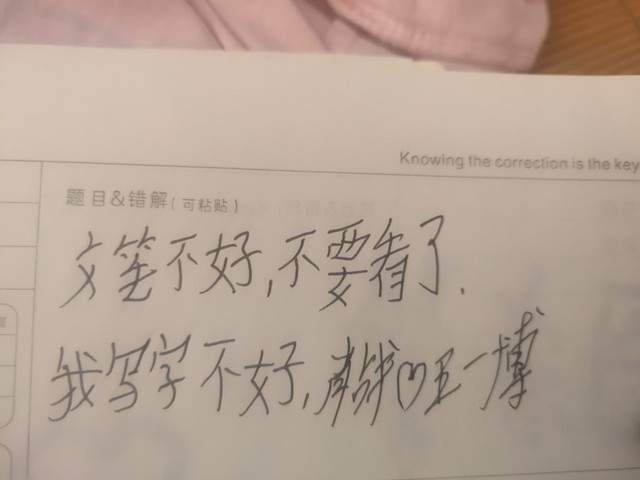 Knowing the correction is the key
题目&错解(可粘贴)
文笔不好,不要看了.
我写字不好,